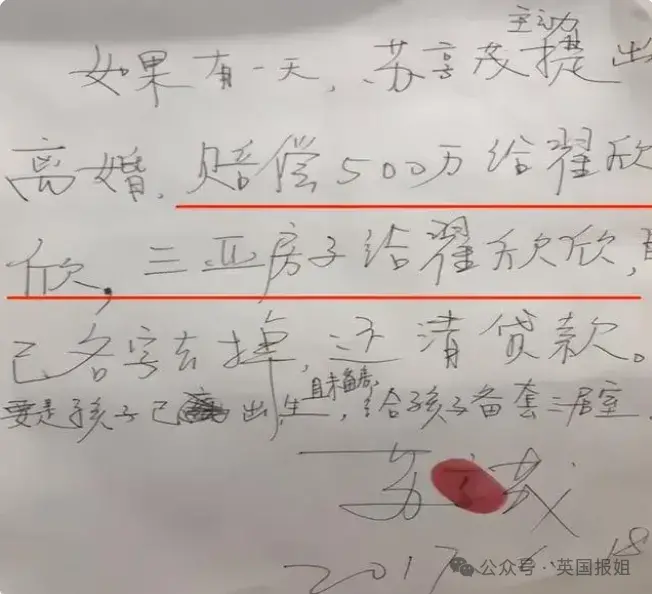 主动
如果有一天，苏享茂提出
离婚，赔偿500万给翟欣
欣，三亚房子给翟欣欣，自
己名字去掉，还清贷款。
要是孩子已出生，且未备孕，给孩子备套三居室
苏享茂
2017 18
公众号·英国报姐